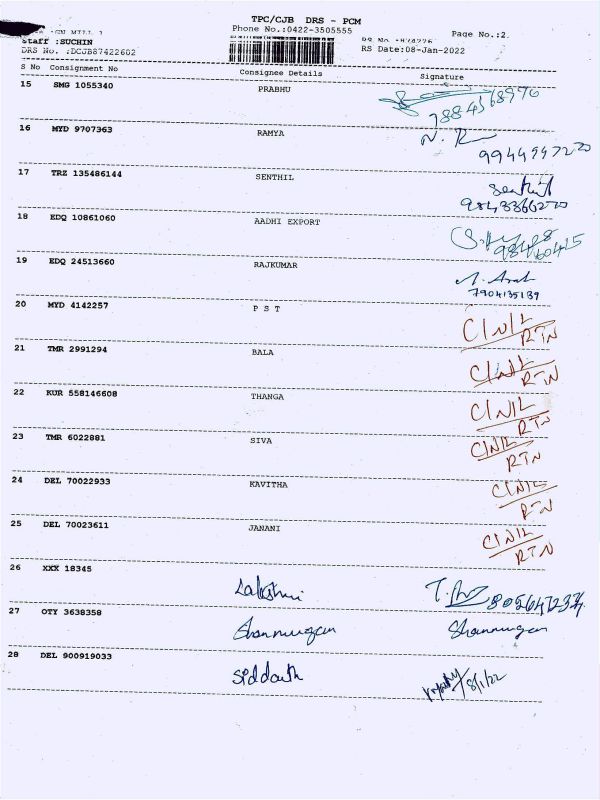 TPC/CJB DRS - PCM
Phone No.:0422-3505555
Page No.:2
Staff :SUCHIN
DRS No. :DCJB87422602
RS Date:08-Jan-2022
S No Consignment No Consignee Details Signature
15 SMG 1055340 PRABHU
7884368976
16 MYD 9707363 RAMYA
17 TRZ 135486144 SENTHIL Senthil
18 EDQ 10861060 AADHI EXPORT
19 EDQ 24513660 RAJKUMAR
7904135189
20 MYD 4142257 P S T C/N/L
RTN
21 TMR 2991294 BALA C/N/L
RTN
22 KUR 558146608 THANGA C/N/L
RTN
23 TMR 6022881 SIVA C/N/L
RTN
24 DEL 70022933 KAVITHA C/N/L
RTN
25 DEL 70023611 JANANI C/N/L
RTN
26 XXX 18345 Lakshmi
27 OTY 3638358 Shanmugam Shanmugam
28 DEL 900919033 Siddarth 8/1/22